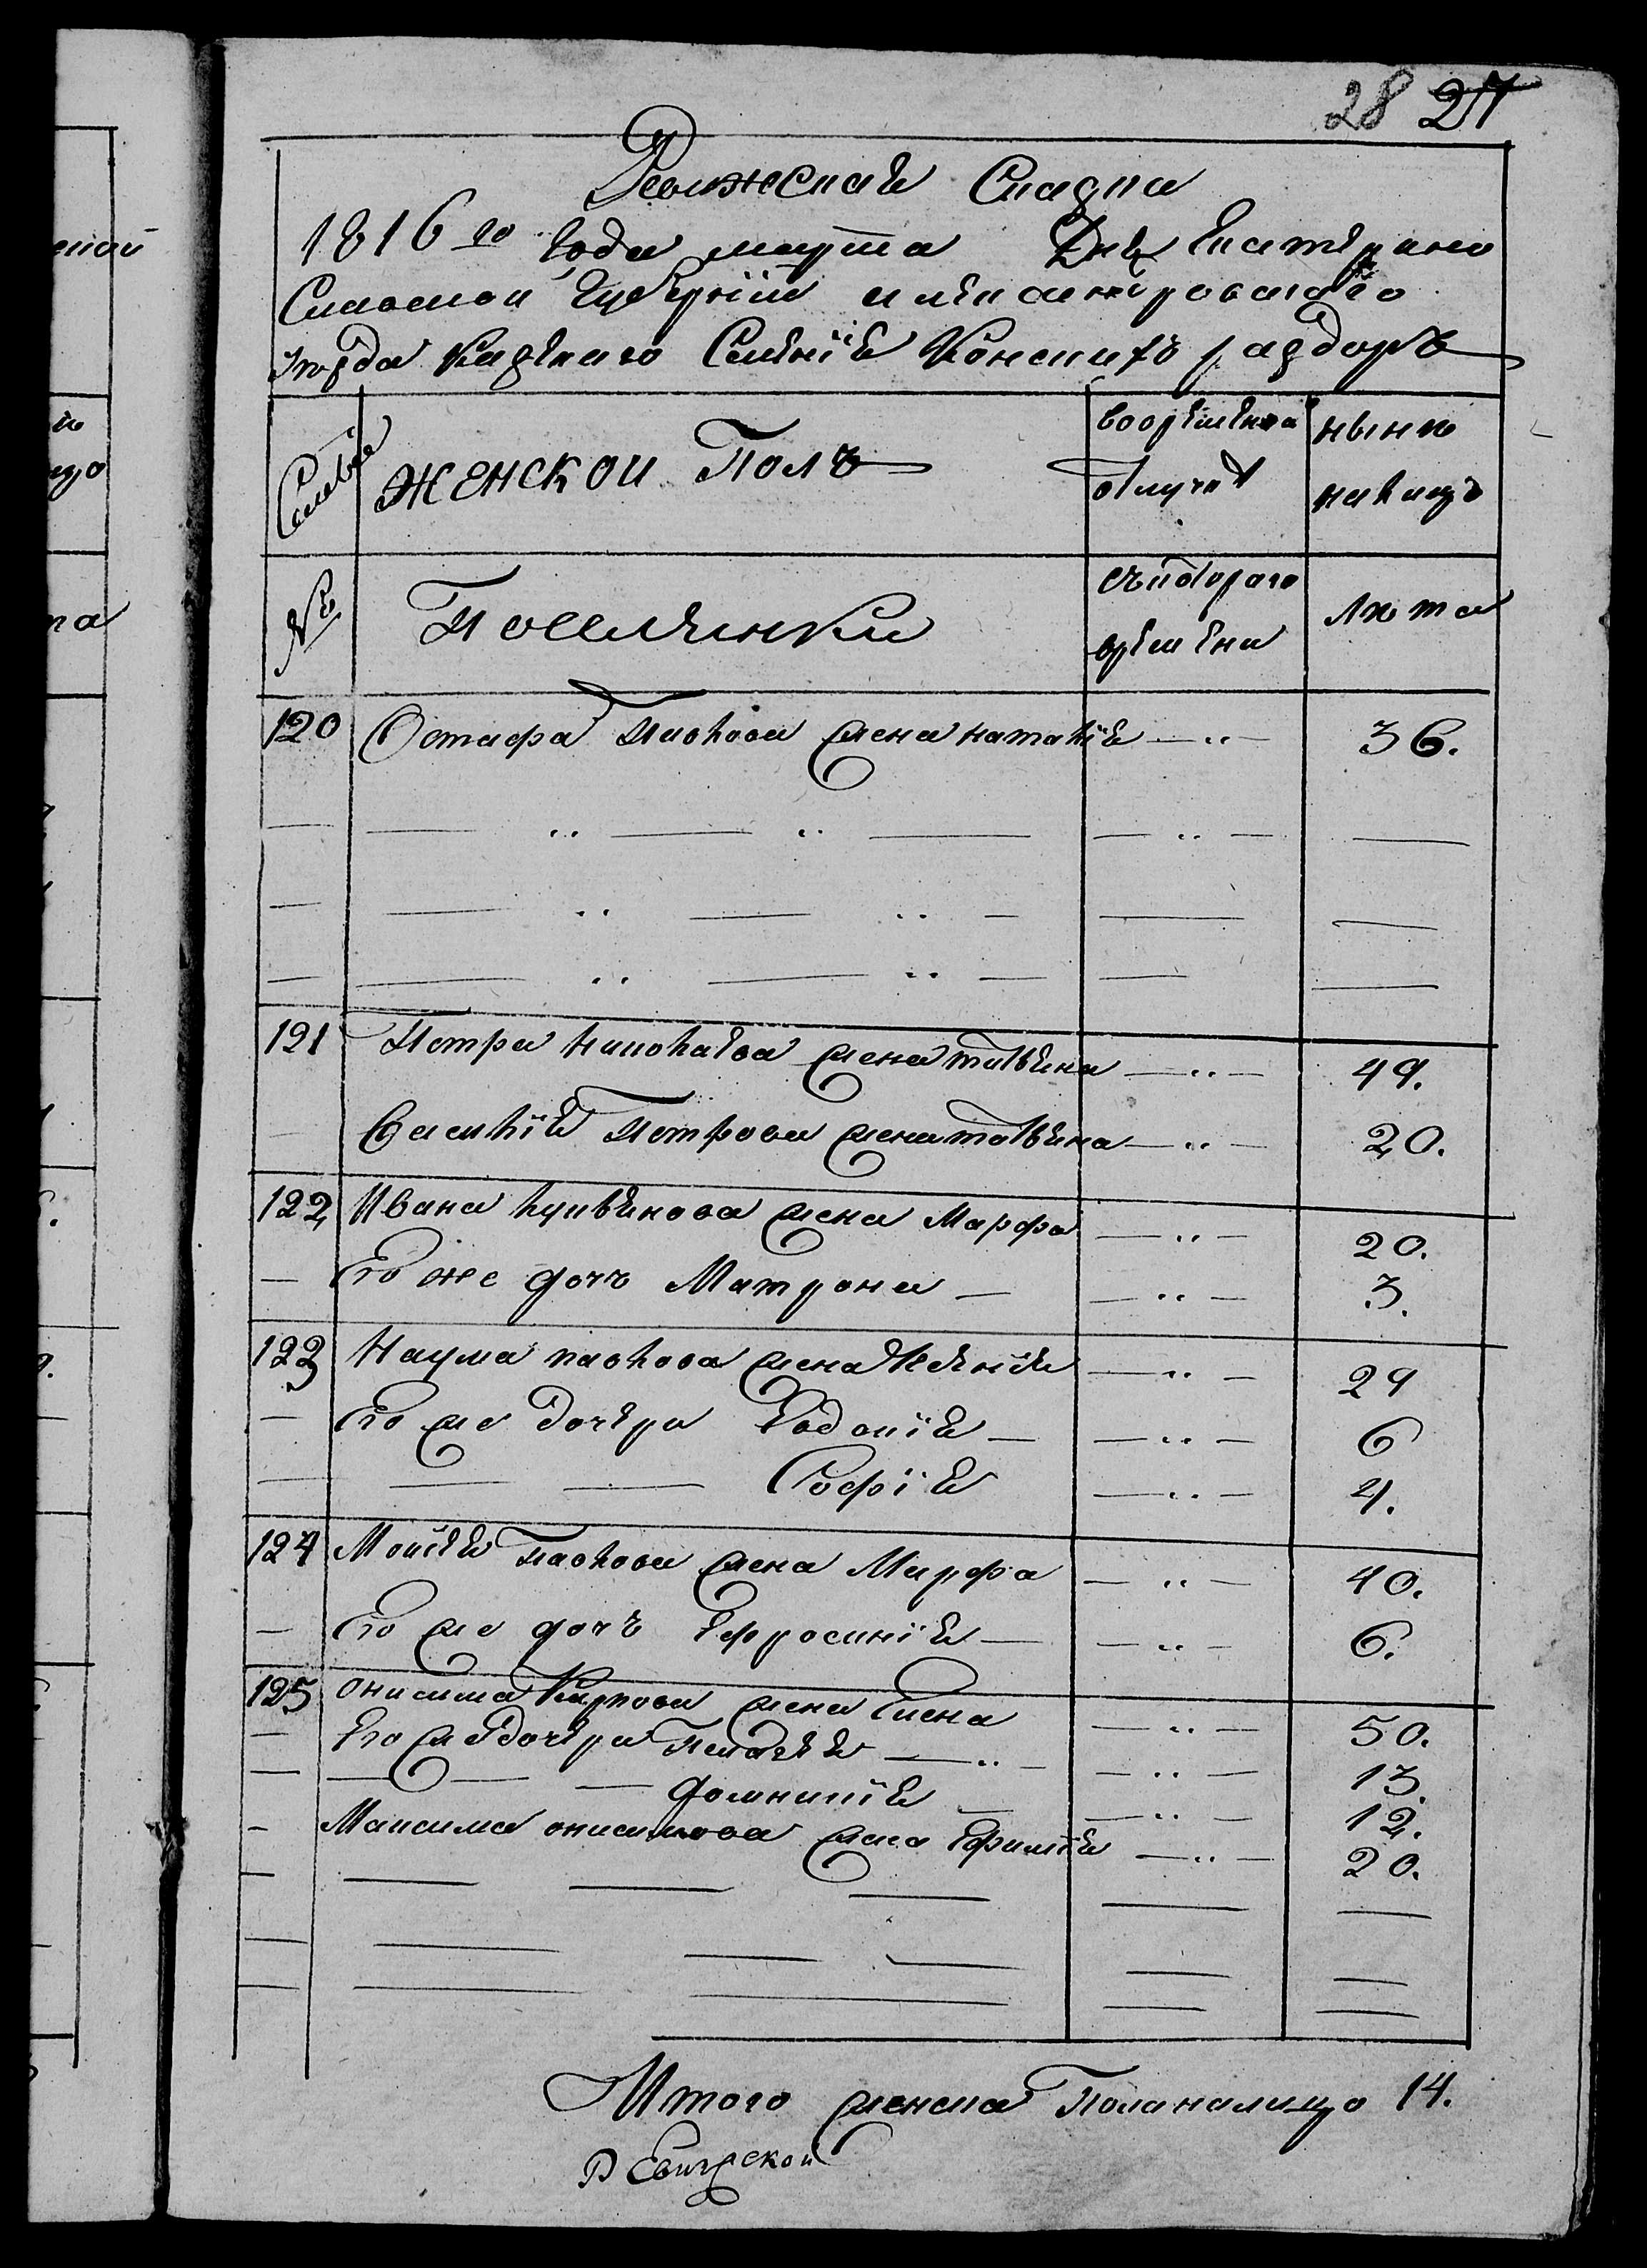 28 27
Ревижская Сказка
1816го года марта Дня Екатерино
Славской Губернии Александровского
уезда казенного Селения Конских раздоръ
Семьи
женской Полъ
вовременной
отлучке
ныне
налицо
№
Поселянки
скоторого
времени
лета
120 Остафа Павлова жена наталия — 36.
121 Петра Николаева жена татьяна — 49.
Василия Петрова жена татьяна — 20.
122 Ивана Лукьянова жена Марфа — 20.
Его же дочь Матрона — 3.
123 Наума павлова жена Ксения — 29
Его же дочери Евдокия — 6
София — 4.
124 Моисея Павлова жена Марфа — 40.
Его же дочь Ефросиния — 6.
125 онисима Карпова жена Елена — 50.
Его же дочери Пелагея — 13.
домникия — 12.
Максима онисимова жена Ефимия — 20.
Итого женска Пола налицо 14.